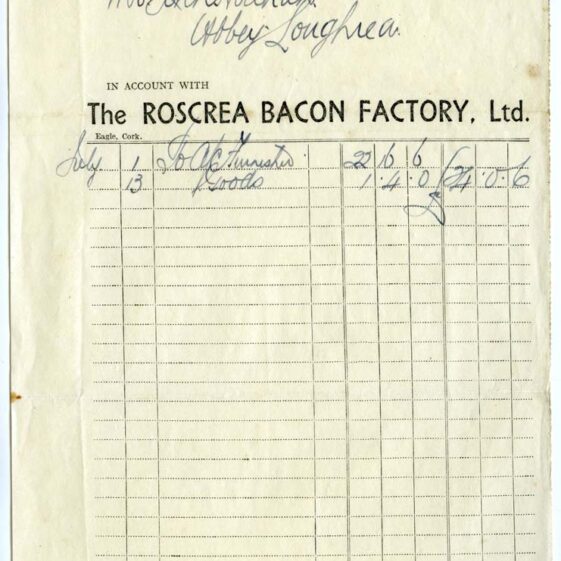 Abbey Loughrea.
IN ACCOUNT WITH
The ROSCREA BACON FACTORY, Ltd.
Eagle, Cork.
July 1 To A/c Furnished 22 6 6
13 Goods 1 . 4 . 0 24 . 0 . 6